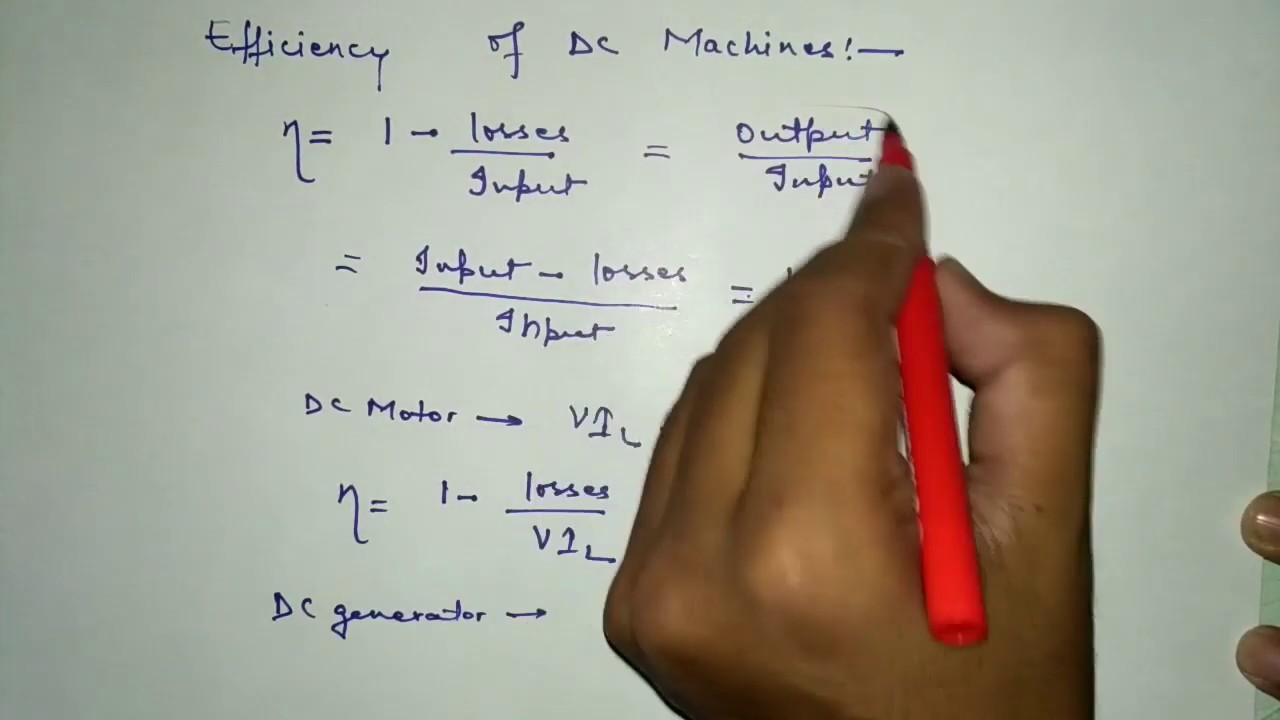 Efficiency of DC Machines:—
η = 1 - losses / Input = Output / Input
= Input - losses / Input =
DC Motor → VI_L
η = 1 - losses / VI_L
DC generator →